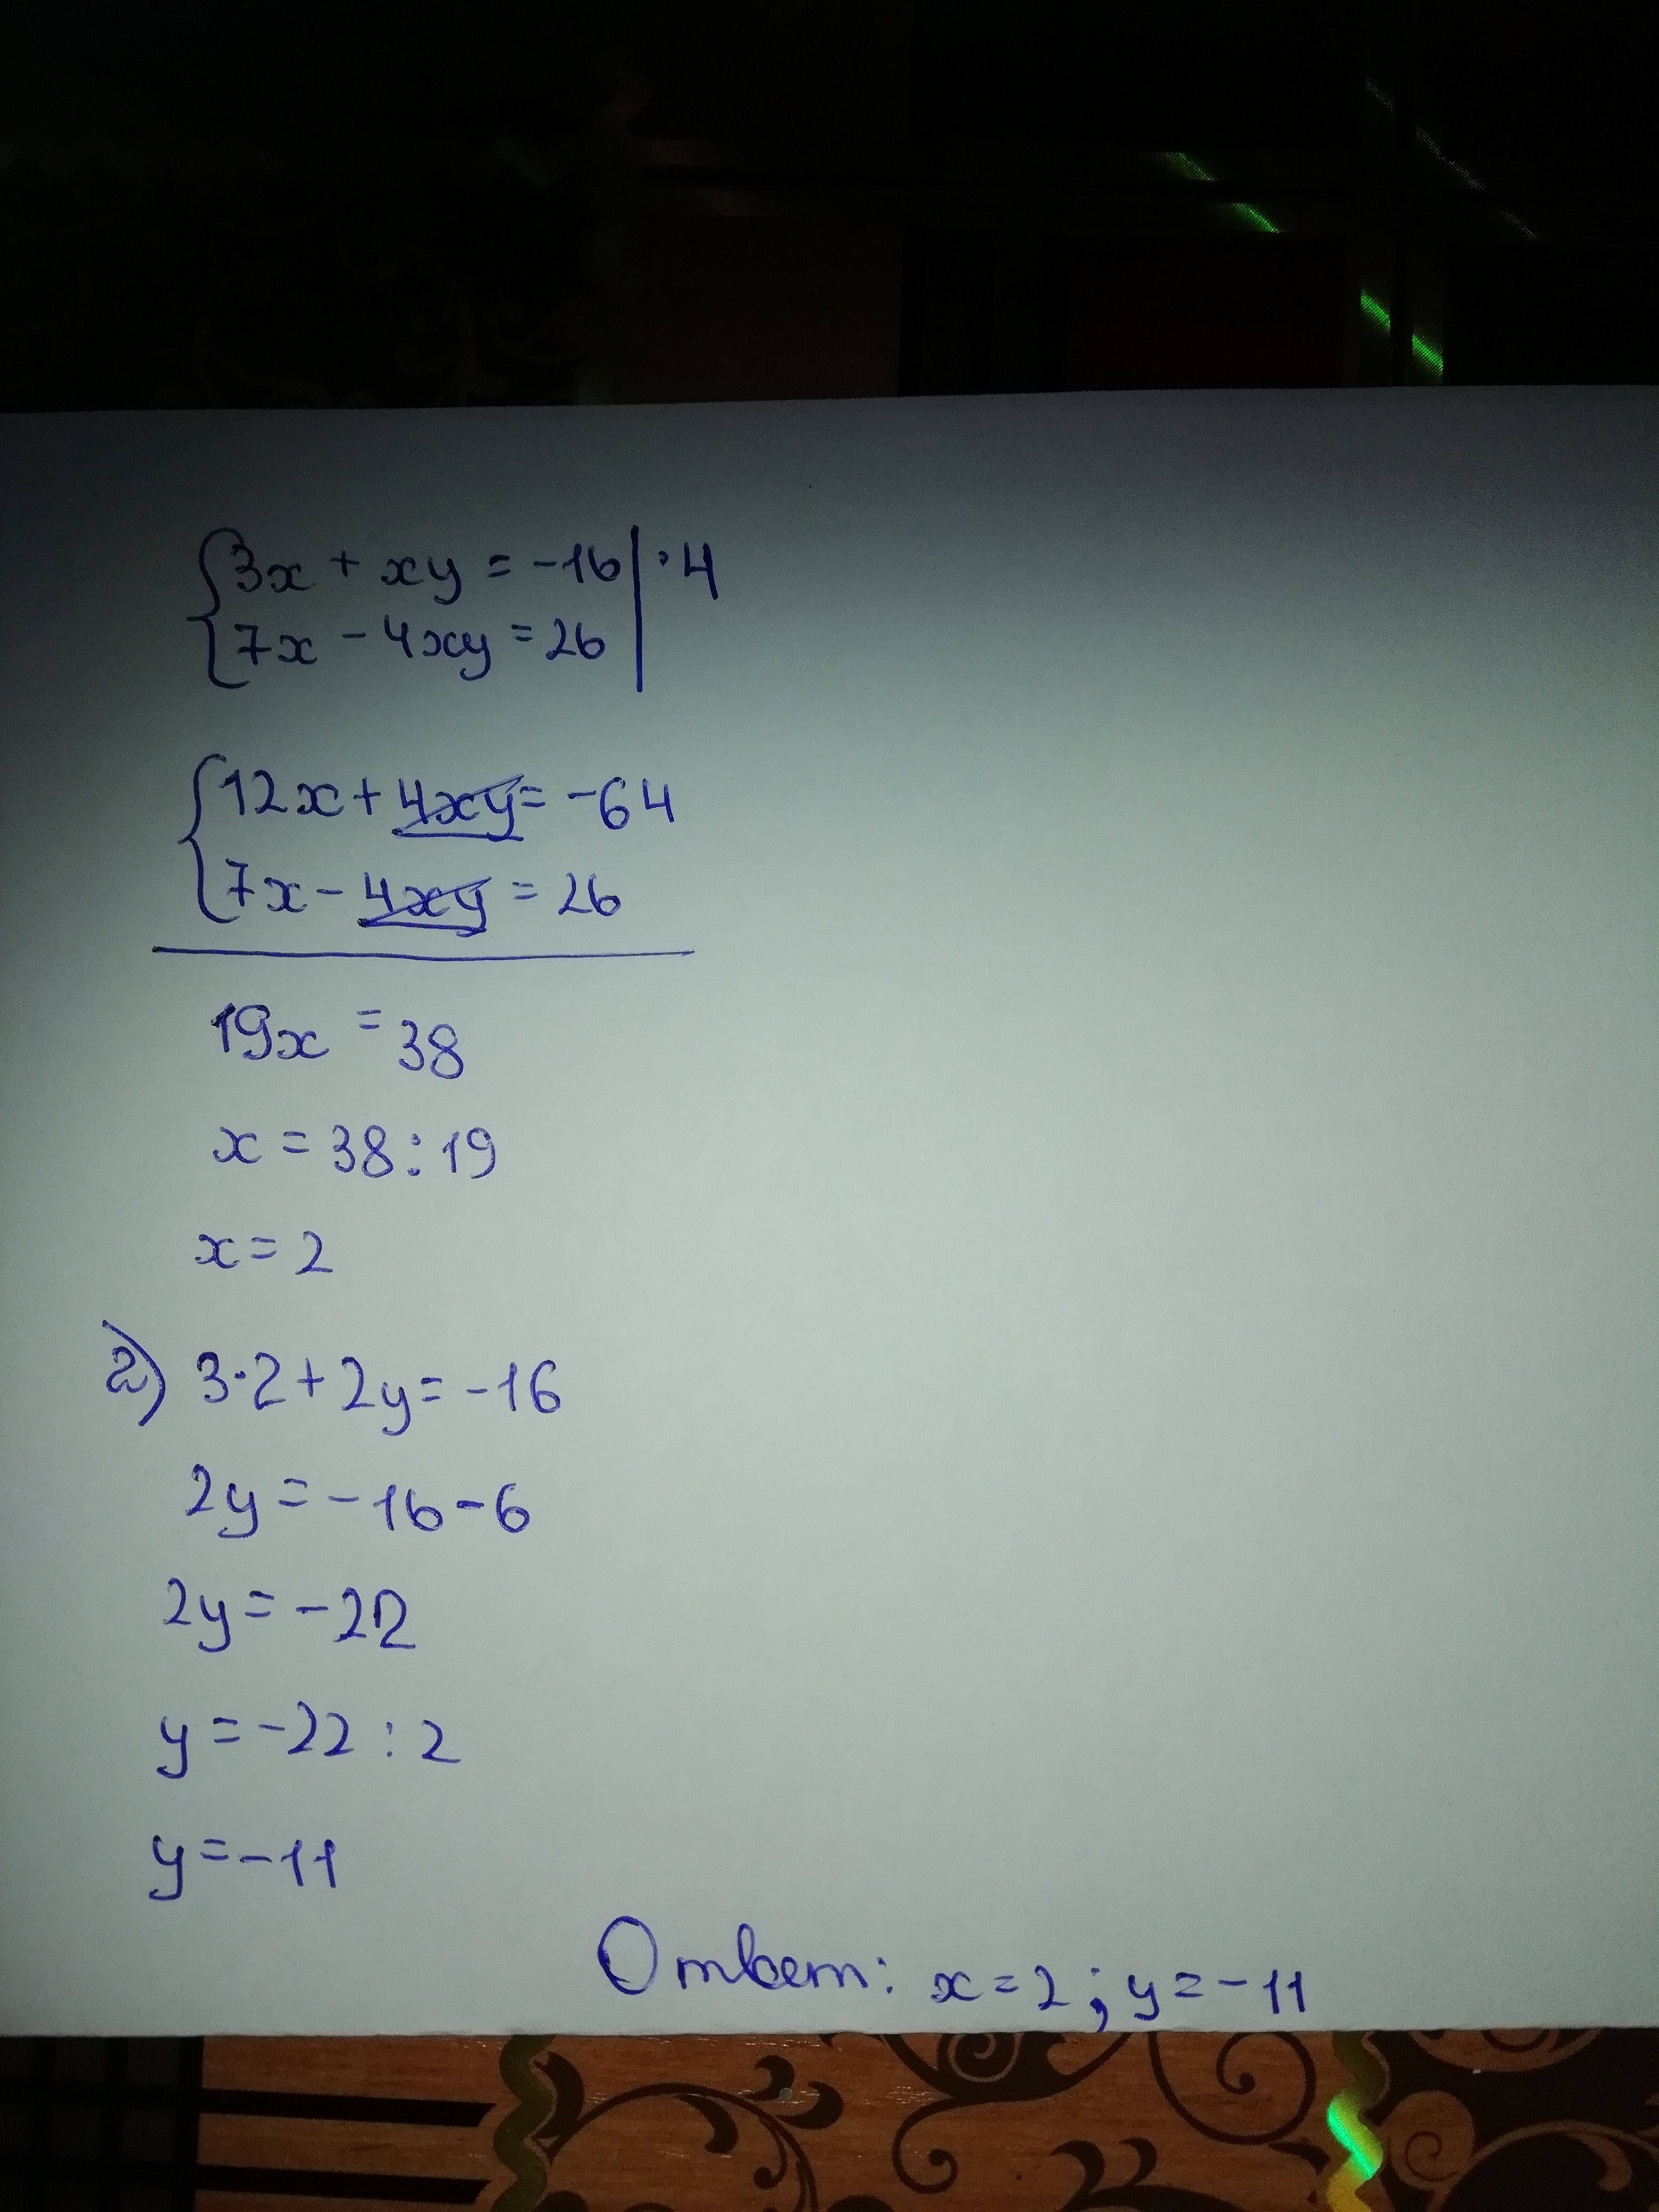 {3x + xy = -16 | · 4
{7x - 4xy = 26 |
{12x + 4xy = -64
{7x - 4xy = 26
19x = 38
x = 38 : 19
x = 2
2) 3·2 + 2y = -16
2y = -16 - 6
2y = -22
y = -22 : 2
y = -11
Ответ: x = 2 ; y = -11